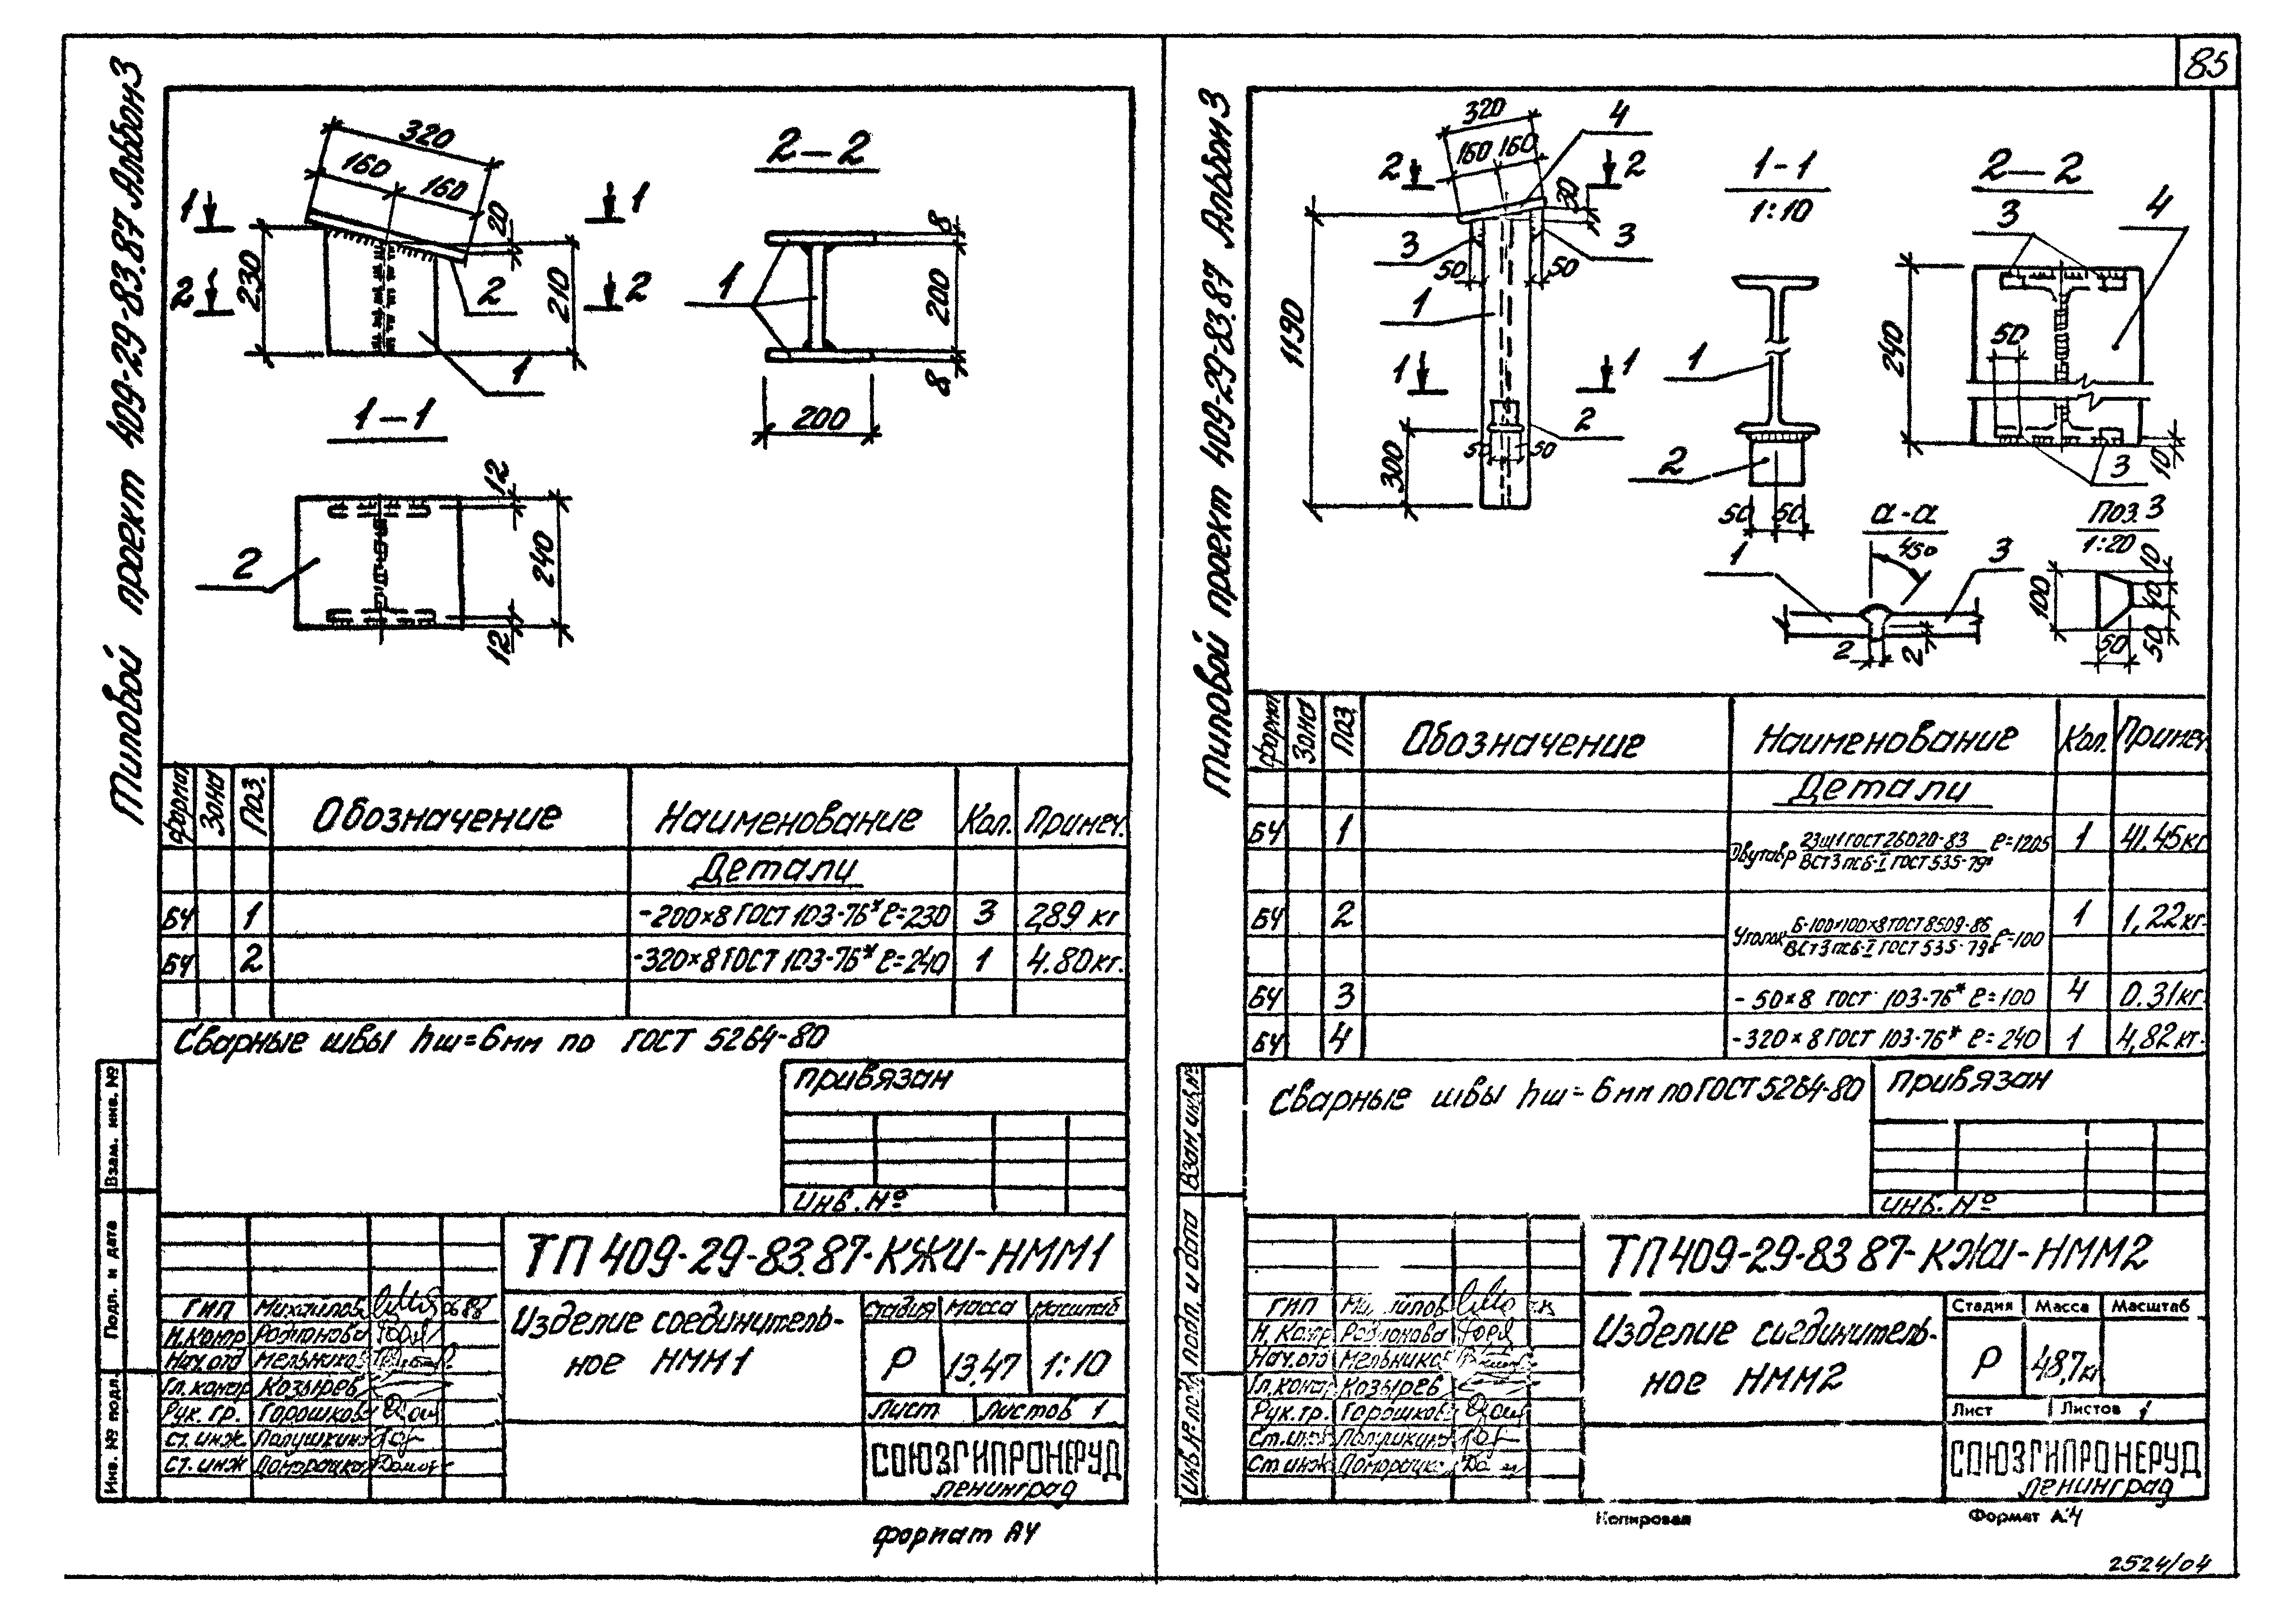 85
Типовой проект 409-29-83.87 Альбом 3
320
160
160
1
1
20
230
210
2
2
2
1
2-2
8
200
8
1
200
1-1
12
240
12
2
формат
Зона
Поз.
Обозначение
Наименование
Кол.
Примеч.
Детали
БЧ 1 -200×8 ГОСТ 103-76* ℓ=230 3 2,89 кг
БЧ 2 -320×8 ГОСТ 103-76* ℓ=240 1 4.80 кг.
Сварные швы hш=6мм по ГОСТ 5264-80
Привязан
Инв. №
Взам. инв. №
Подп. и дата
Инв. № подл.
ТП 409-29-83.87-КЖИ-НММ1
Изделие соединитель-
ное НММ1
Стадия Масса Масштаб
Р 13,47 1:10
Лист Листов 1
СОЮЗГИПРОНЕРУД
Ленинград
ГИП Михайлов 0688
Н.контр Родионова
Нач.отд Мельников
Гл.констр Козырев
Рук. гр. Горошкова
Ст. инж
Ст. инж
формат А4
Типовой проект 409-29-83.87 Альбом 3
320
160 160
4
2
2
20
3
3
50
50
1190
1
1
1
2
300
50
50
1-1
1:10
1
2
50 50
2-2
3
4
50
240
3
10
а-а
45°
1
3
2
2
Поз. 3
1:20
100
10
40
50
50
формат
Зона
Поз.
Обозначение
Наименование
Кол.
Примеч.
Детали
БЧ 1 Двутавр 23Ш1 ГОСТ 26020-83 ℓ=1205 1 41.45 кг
ВСт3пс6-I ГОСТ 535-79*
БЧ 2 Уголок Б-100×100×8 ГОСТ 8509-86 ℓ=100 1 1,22 кг.
ВСт3пс6-I ГОСТ 535-79*
БЧ 3 - 50×8 ГОСТ 103-76* ℓ=100 4 0.31 кг.
БЧ 4 -320×8 ГОСТ 103-76* ℓ=240 1 4,82 кг.
Сварные швы hш=6мм по ГОСТ 5264-80
Привязан
Инв. №
Взам. инв. №
Подп. и дата
Инв. № подл
ТП 409-29-83 87-КЖИ-НММ2
Изделие соединитель-
ное НММ2
Стадия Масса Масштаб
Р 48,7 кг
Лист Листов 1
СОЮЗГИПРОНЕРУД
Ленинград
ГИП Михайлов
Н. Контр Родионова
Нач.отд Мельников
Гл.констр Козырев
Рук.гр. Горошкова
Ст.инж
Ст инж
Копировал
Формат А4
2524/04